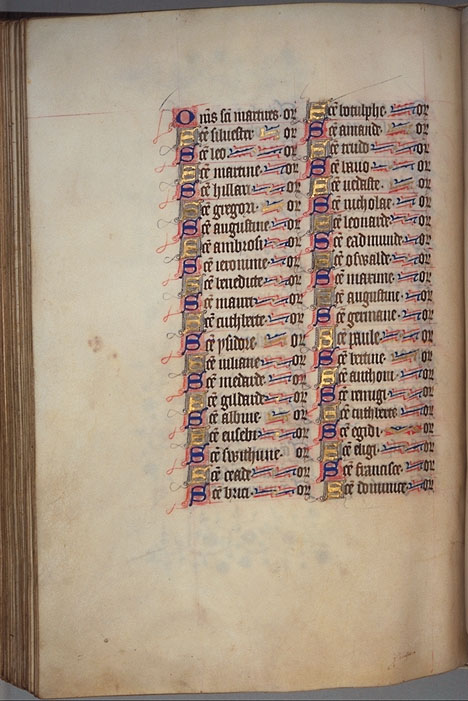 Om̄s sc̄i martires. or
Sc̄e siluester or
Sc̄e leo. or
Sc̄e martine. or
Sc̄e hillari or
Sc̄e gregori. or
Sc̄e augustine or
Sc̄e ambrosi or
Sc̄e ieronime or
Sc̄e benedicte or
Sc̄e maure or
Sc̄e cuthberte or
Sc̄e ysidore. or
Sc̄e iuliane or
Sc̄e medarde or
Sc̄e gildarde or
Sc̄e albine or
Sc̄e eusebi or
Sc̄e swithune. or
Sc̄e ceade or
Sc̄e brici. or
Sc̄e botulphe. or
Sc̄e amande. or
Sc̄e trudo or
Sc̄e bauo or
Sc̄e uedaste. or
Sc̄e nicholae. or
Sc̄e leonarde or
Sc̄e eadmunde. or
Sc̄e oswalde. or
Sc̄e maxime. or
Sc̄e augustine. or
Sc̄e germane or
Sc̄e paule. or
Sc̄e bertine. or
Sc̄e anthoni or
Sc̄e remigi. or
Sc̄e cuthberte or
Sc̄e egidi. or
Sc̄e eligi. or
Sc̄e francisce. or
Sc̄e dominice. or